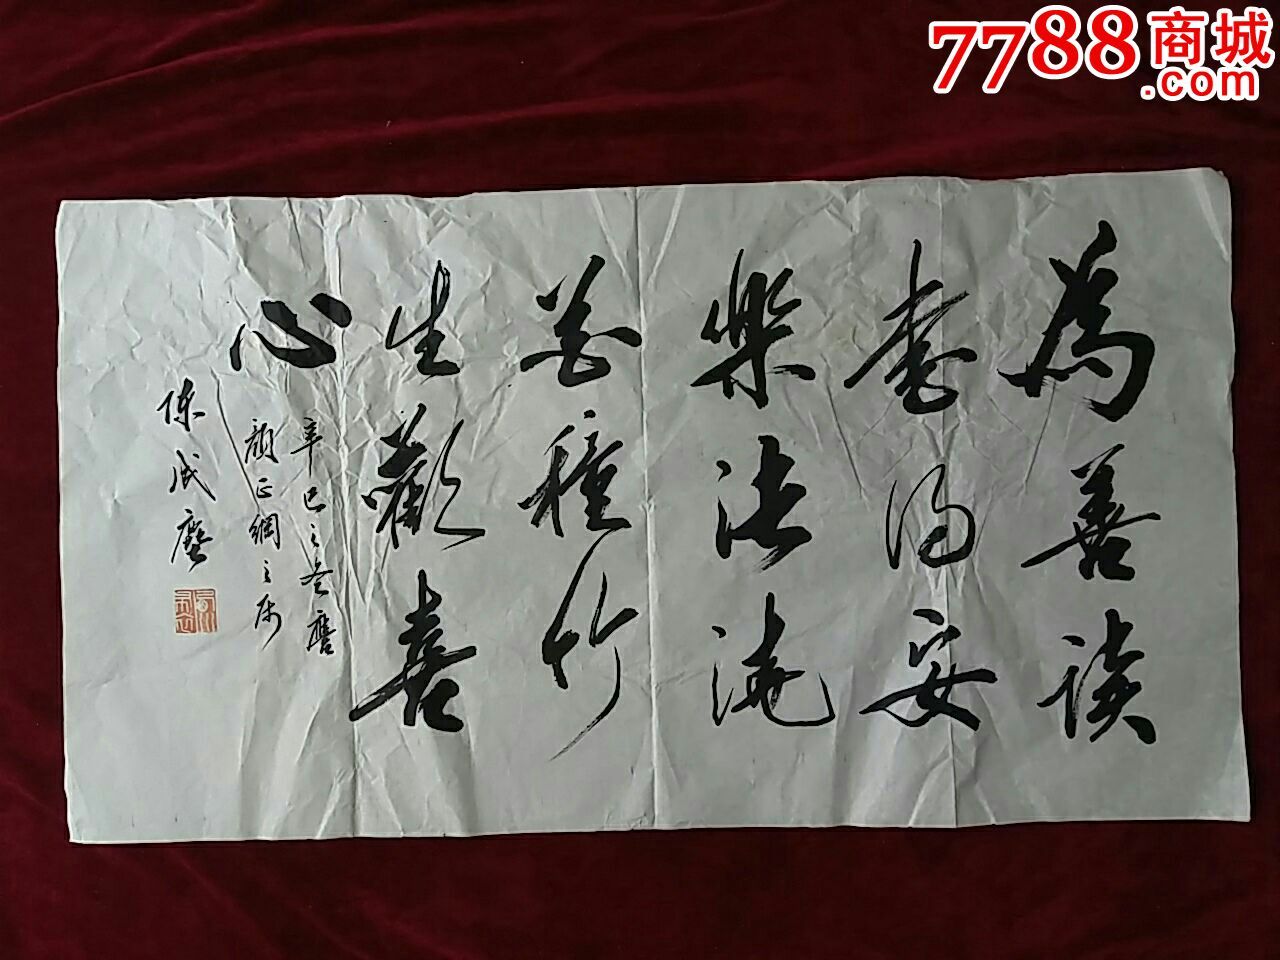 7788商城
.com
為善讀
書得安
樂法澆
花種竹
生歡喜
心
辛巳之冬應
正綱之
陳成